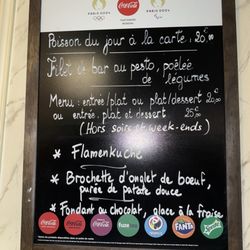 PARIS 2024
Coca-Cola
PARIS 2024
Poisson du jour à la carte, 20,00
Filet de bar au pesto, poêlée
de légumes
Menu : entrée/plat ou plat/dessert 20€
ou entrée, plat et dessert 25€
(Hors soirs et week-ends)
* Flamenkuche
* Brochette d'onglet de boeuf,
purée de patate douce
* Fondant au chocolat, glace à la fraise
Coca-Cola
Coca-Cola
fuze
FANTA